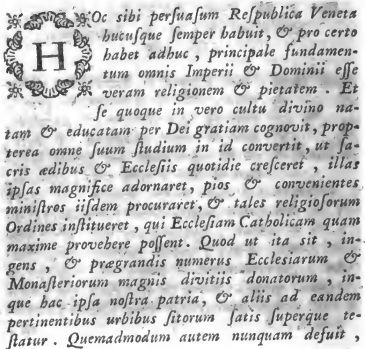 HOc sibi persuasum Respublica Veneta
hucusque semper habuit, & pro certo
habet adhuc, principale fundamen-
tum omnis Imperii & Dominii esse
veram religionem & pietatem. Et
se quoque in vero cultu divino na-
tam & educatam per Dei gratiam cognovit, prop-
terea omne suum studium in id convertit, ut sa-
cris ædibus & Ecclesiis quotidie cresceret, illas
ipsas magnifice adornaret, pios & convenientes
ministros iisdem procuraret, & tales religiosorum
Ordines institueret, qui Ecclesiam Catholicam quam
maxime provehere possent. Quod ut ita sit, in-
gens, & prægrandis numerus Ecclesiarum &
Monasteriorum magnis divitiis donatorum, in-
que hac ipsa nostra patria, & aliis ad eandem
pertinentibus urbibus sitorum satis superque te-
statur. Quemadmodum autem nunquam defuit,